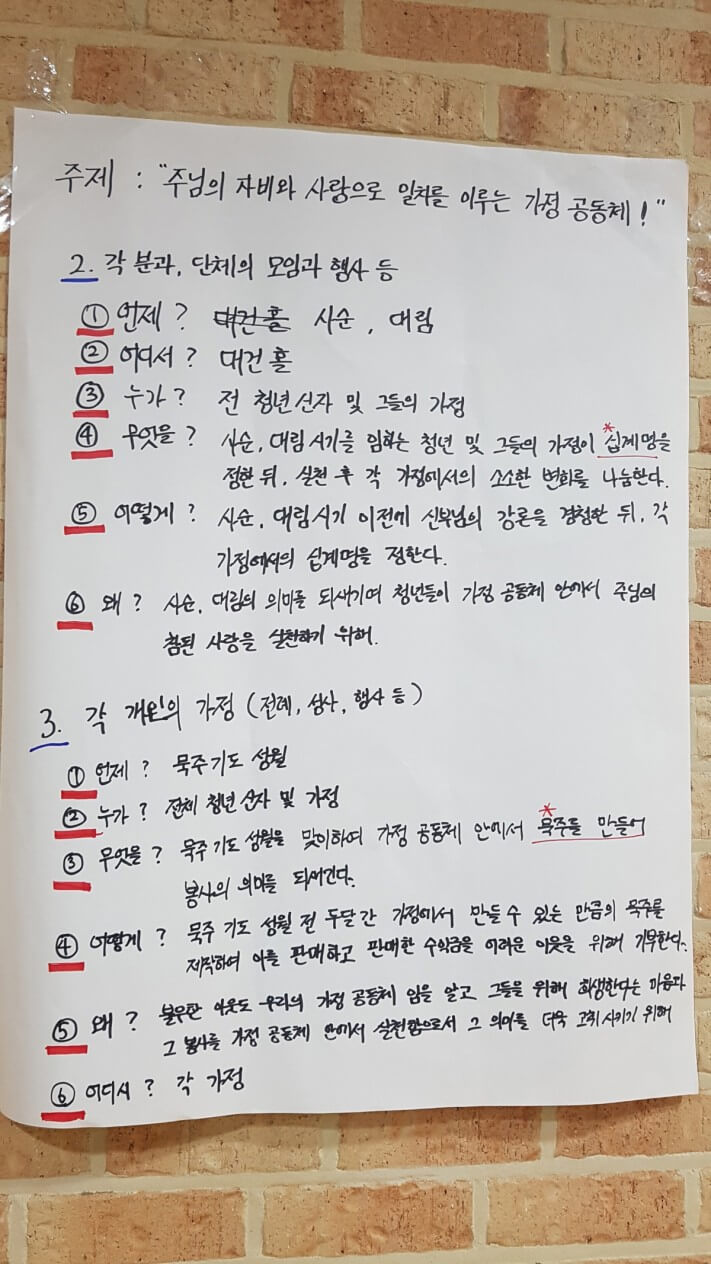 주제 : "주님의 자비와 사랑으로 일치를 이루는 가정 공동체!"
2. 각 분과, 단체의 모임과 행사 등
① 언제? 대건홀 사순, 대림
② 어디서? 대건홀
③ 누가? 전 청년신자 및 그들의 가정
④ 무엇을? 사순, 대림시기를 임하는 청년 및 그들의 가정이 *십계명을
정한 뒤, 실천 후 각 가정에서의 소소한 변화를 나눔한다.
⑤ 어떻게? 사순, 대림시기 이전에 신부님의 강론을 경청한 뒤, 각
가정에서의 십계명을 정한다.
⑥ 왜? 사순, 대림의 의미를 되새기며 청년들이 가정 공동체 안에서 주님의
참된 사랑을 실천하기 위해.
3. 각 개인의 가정 (전례, 성사, 행사 등)
① 언제? 묵주기도 성월
② 누가? 전체 청년신자 및 가정
③ 무엇을? 묵주기도 성월을 맞이하여 가정 공동체 안에서 *묵주를 만들어
봉사의 의미를 되새긴다.
④ 어떻게? 묵주 기도 성월 전 두달간 가정에서 만들 수 있는 만큼의 묵주를
제작하여 이를 판매하고 판매한 수익금을 어려운 이웃을 위해 기부한다.
⑤ 왜? 불우한 이웃도 우리의 가정 공동체 임을 알고, 그들을 위해 희생한다는 마음과
그 봉사를 가정 공동체 안에서 실천함으로서 그 의미를 더욱 고취시키기 위해
⑥ 어디서? 각 가정